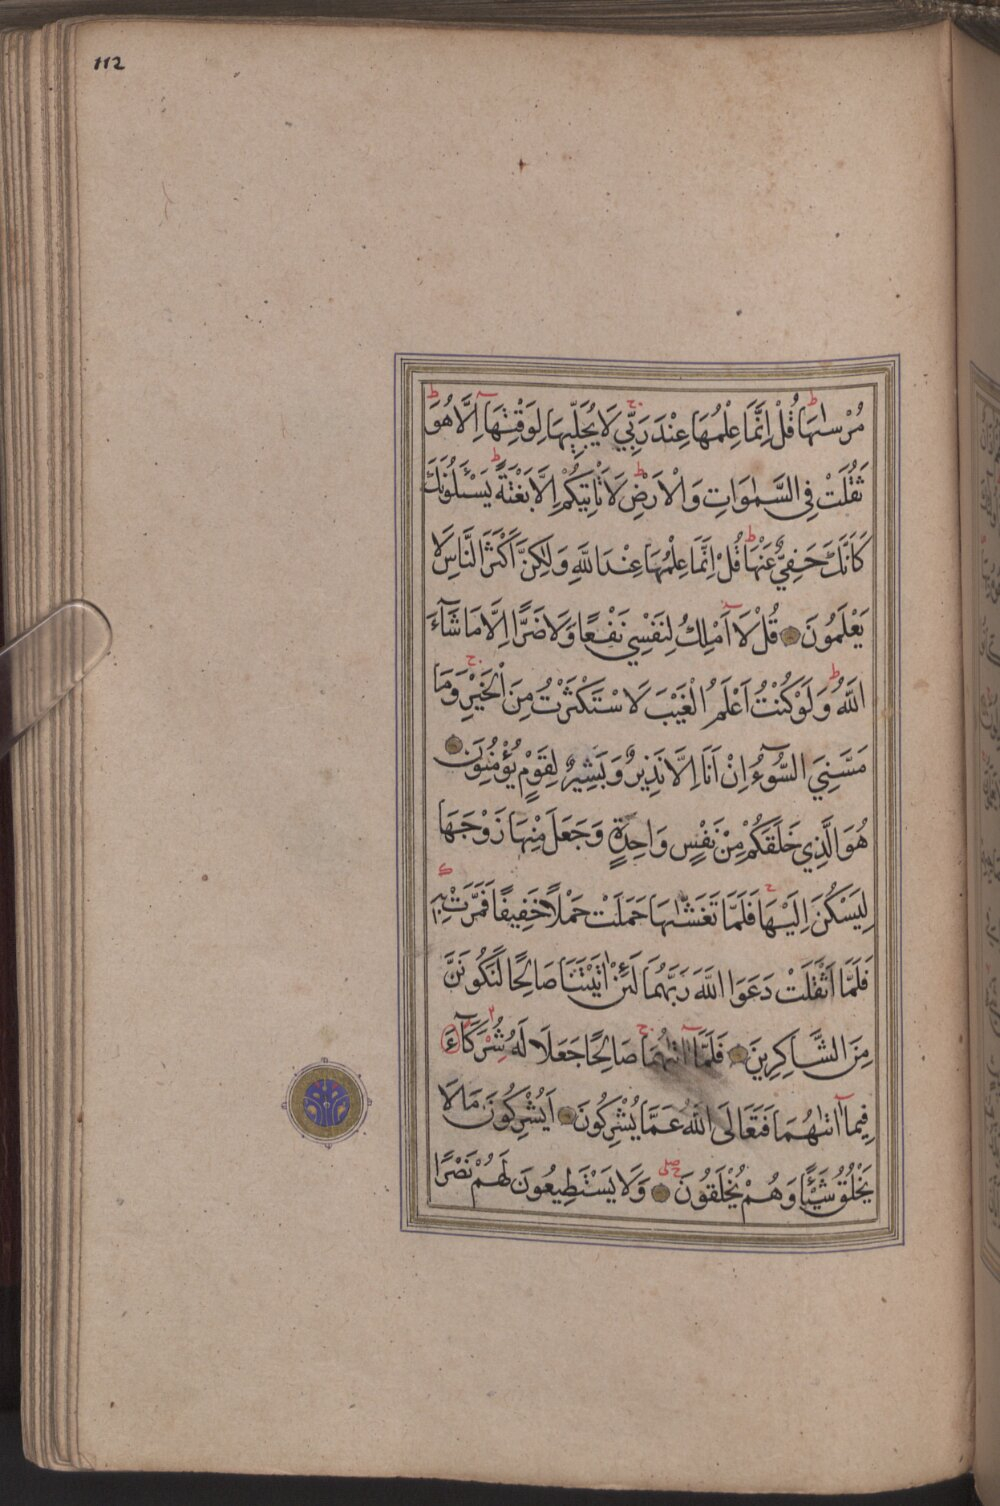 112
مُرْسٰيهَا قُلْ اِنَّمَا عِلْمُهَا عِنْدَ رَبِّي لَا يُجَلِّيهَا لِوَقْتِهَٓا اِلَّا هُوَ
ثَقُلَتْ فِي السَّمٰوَاتِ وَالْاَرْضِ لَا تَاْتِيكُمْ اِلَّا بَغْتَةً يَسْـَٔلُونَكَ
كَاَنَّكَ حَفِيٌّ عَنْهَا قُلْ اِنَّمَا عِلْمُهَا عِنْدَ اللَّهِ وَلٰكِنَّ اَكْثَرَ النَّاسِ لَا
يَعْلَمُونَ قُلْ لَٓا اَمْلِكُ لِنَفْسِي نَفْعًا وَلَا ضَرًّا اِلَّا مَا شَآءَ
اللَّهُ وَلَوْ كُنْتُ اَعْلَمُ الْغَيْبَ لَاسْتَكْثَرْتُ مِنَ الْخَيْرِ وَمَا
مَسَّنِيَ السُّٓوءُ اِنْ اَنَا اِلَّا نَذِيرٌ وَبَشِيرٌ لِقَوْمٍ يُؤْمِنُونَ
هُوَ الَّذِي خَلَقَكُمْ مِنْ نَفْسٍ وَاحِدَةٍ وَجَعَلَ مِنْهَا زَوْجَهَا
لِيَسْكُنَ اِلَيْهَا فَلَمَّا تَغَشّٰيهَا حَمَلَتْ حَمْلًا خَفِيفًا فَمَرَّتْ بِهِ
فَلَمَّا اَثْقَلَتْ دَعَوَا اللَّهَ رَبَّهُمَا لَئِنْ اٰتَيْتَنَا صَالِحًا لَنَكُونَنَّ
مِنَ الشَّاكِرِينَ فَلَمَّٓا اٰتٰيهُمَا صَالِحًا جَعَلَا لَهُ شُرَكَآءَ
فِيمَٓا اٰتٰيهُمَا فَتَعَالَى اللَّهُ عَمَّا يُشْرِكُونَ اَيُشْرِكُونَ مَا لَا
يَخْلُقُ شَيْئًا وَهُمْ يُخْلَقُونَ وَلَا يَسْتَطِيعُونَ لَهُمْ نَصْرًا